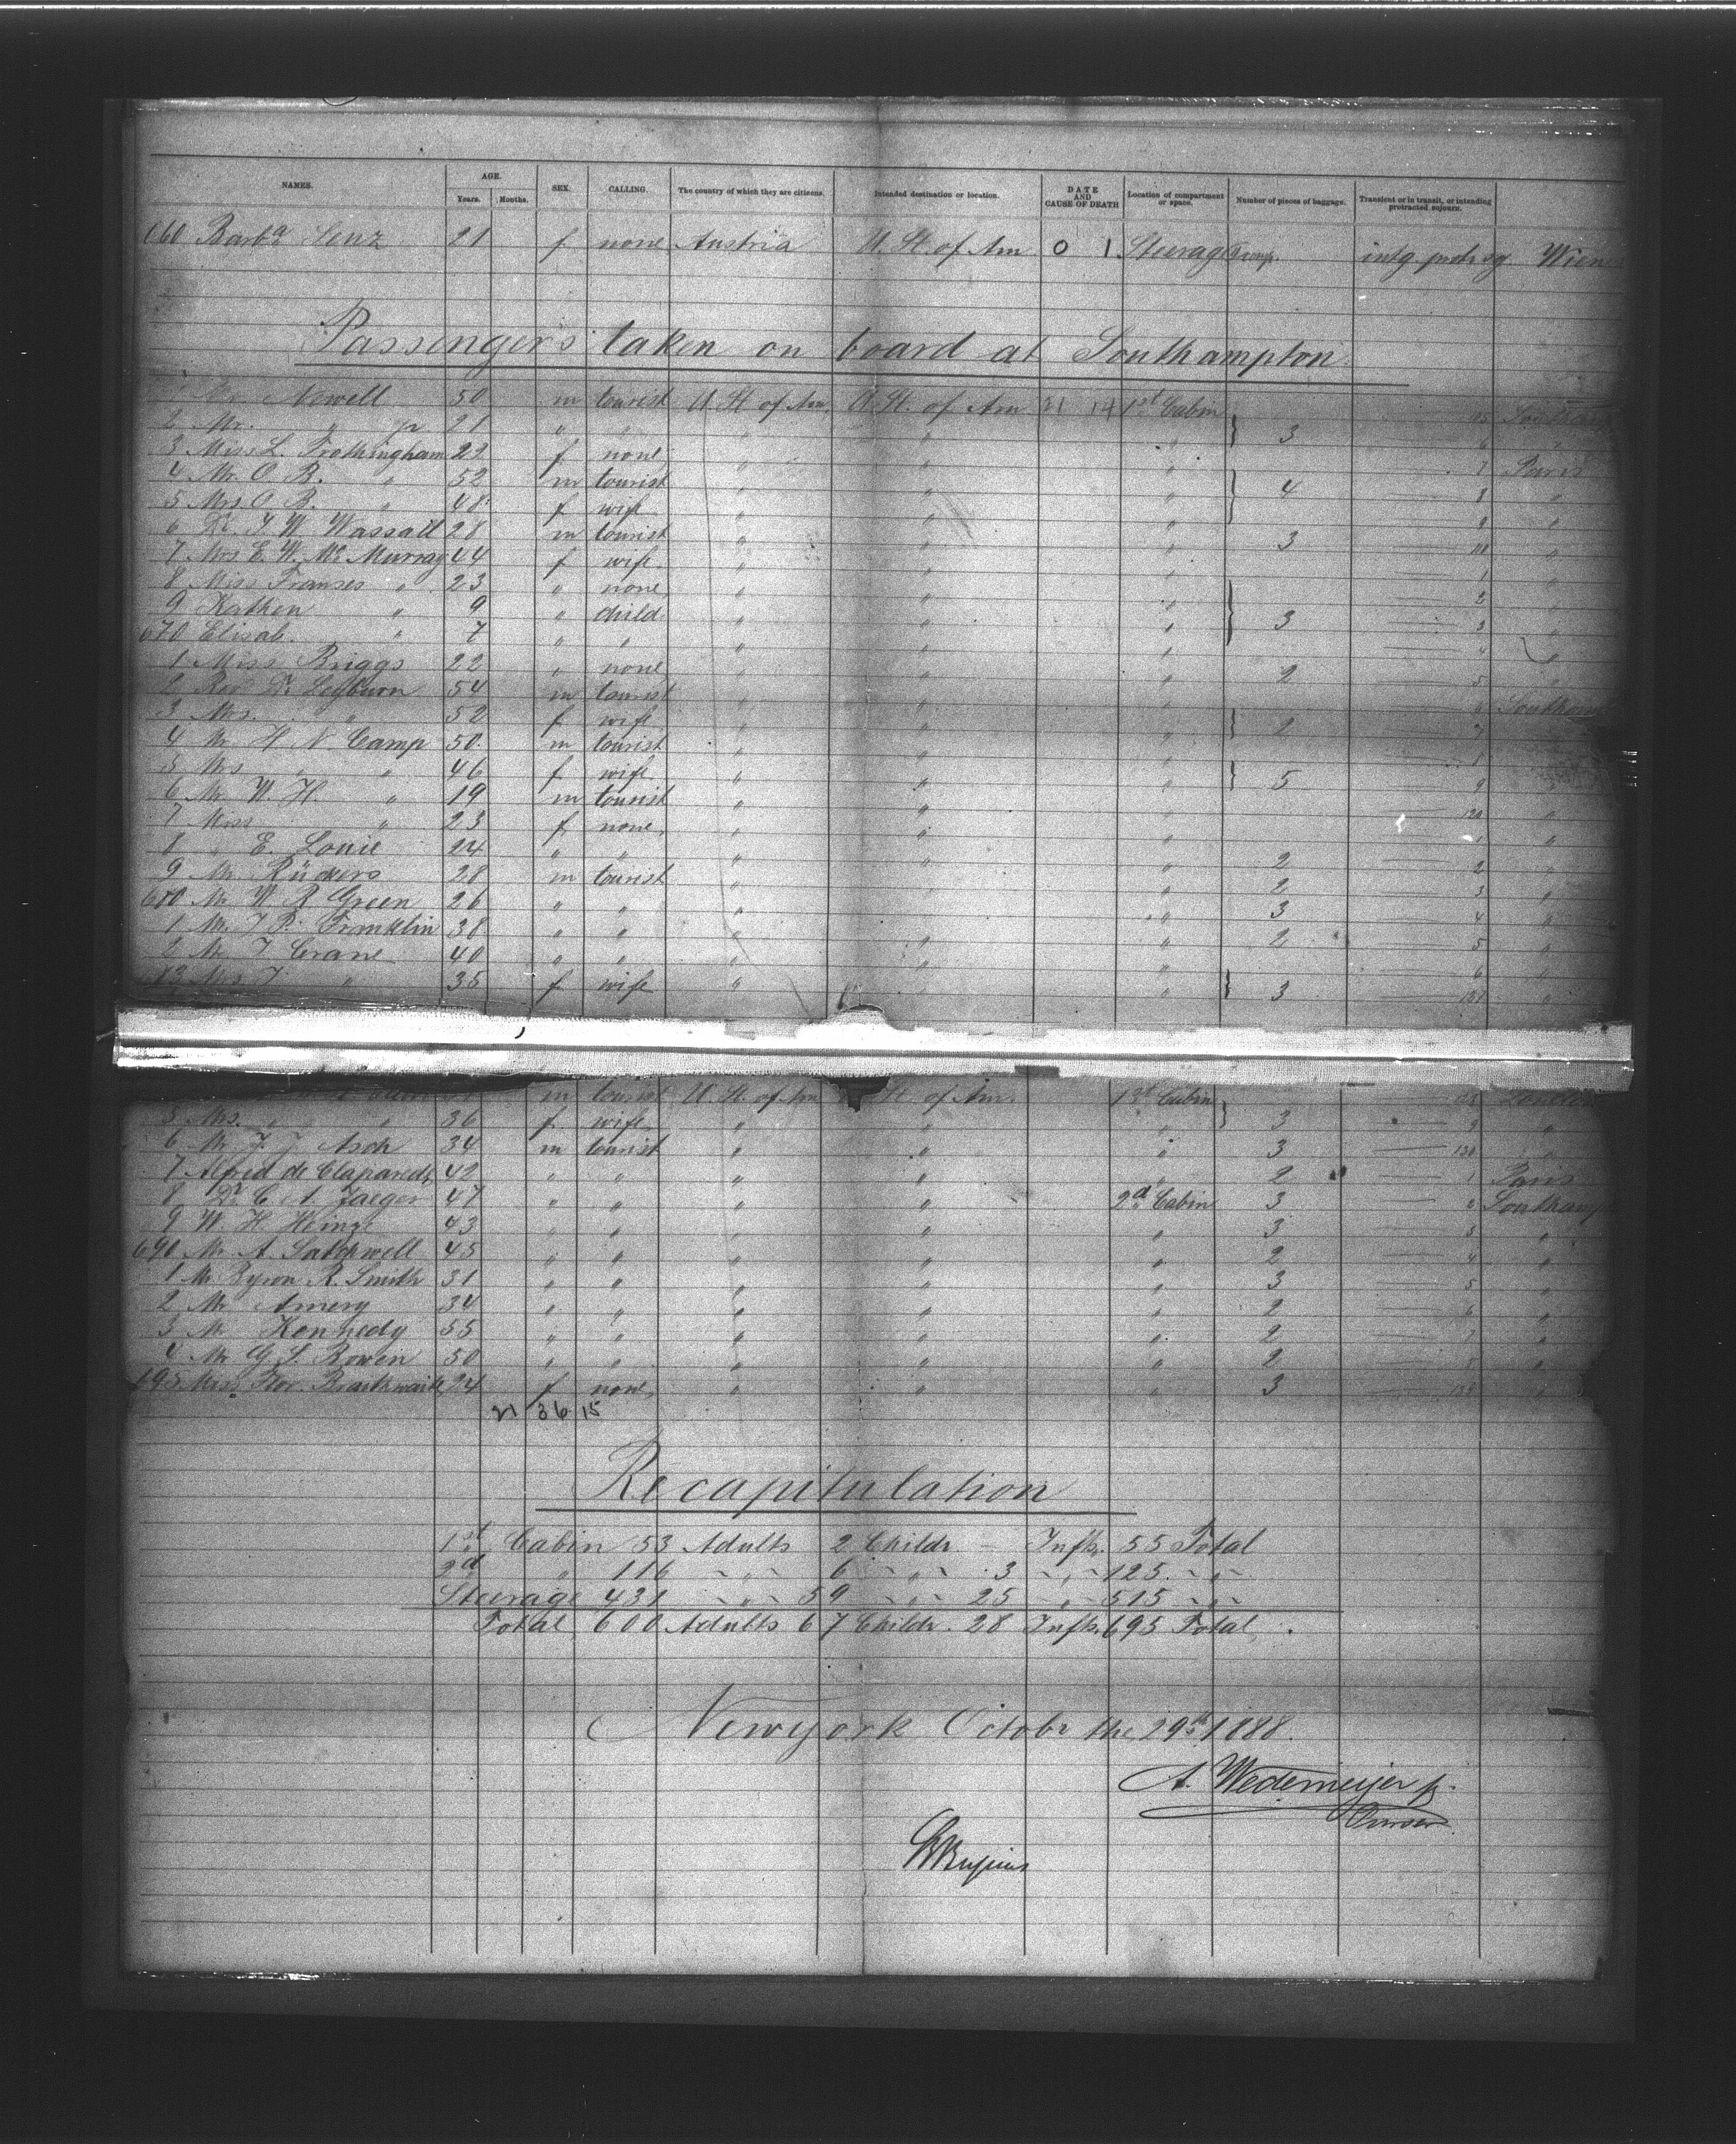 NAMES. AGE. Years. Months. SEX. CALLING. The country of which they are citizens. Intended destination or location. DATE AND CAUSE OF DEATH Location of compartment or space. Number of pieces of baggage. Transient or in transit, or intending protracted sojourn.
660 Barba Lenz 21 f none Austria U. St. of Am 0 1 Steerage intg. protr. sg. Wien
Passengers taken on board at Southampton.
Newell 50 m tourist U. St of Am. U. St. of Am 21 14 1st Cabin
2 Mr. " jr 21 " " " " " } 3 6
3 Miss L. Frothingham 22 f none " " " 7 Paris
4 Mr. O. B. " 52 m tourist " " " } 4 8 "
5 Mrs O. B. " 48 f wife " " " 9 "
6 Dr. T W Wassall 28 m tourist " " " 3 "
7 Mrs E. W. Mc Murray 44 f wife " " " 1 "
8 Miss Franses " 23 " none " " " 2 "
9 Kathen " 9 " child " " " } 3 3 "
670 Elisab. " 7 " " " " " 4 "
1 Miss Briggs 22 " none " " " 2 5 "
2 Rev Dr Leyburn 54 m tourist " " " 6 Southamp
3 Mrs. " 52 f wife " " " } 7
4 Mr H N. Camp 50 m tourist " " "
5 Mrs " 46 f wife " " " } 5 9 "
6 Mr W. H. " 19 m tourist " " " 120 "
7 Miss " 23 f none " " " 1 "
8 " E. Louie 24 " " " " " 2 2 "
9 Mr. Rückers 28 m tourist " " " 2 3 "
680 Mr W R Green 26 " " " " " 3 4 "
1 Mr. T P. Franklin 38 " " " " " 2 5 "
2 Mr T Crane 40 " " " " " 6 "
83 Mrs T " 35 f wife " " " } 3 "
m tourist U. St. of Am St. of Am. 1st Cabin London
5 Mrs. " " 36 f wife " " " } 3 9 "
6 Mr J. J Asch 34 m tourist " " " 3 130 "
7 Alfred de Claparede 42 " " " " " 2 1 Paris
8 Dr. C A. Jaeger 47 " " " " 2d Cabin 3 Southamp
9 W. H. Heinze 43 " " " " " 3 3 "
690 Mr. A. Satchwell 45 " " " " " 2 4 "
1 Mr Byron R. Smith 31 " " " " " 3 5 "
2 Mr Amery 34 " " " " " 2 6 "
3 Mr Kennedy 55 " " " " " 2 7 "
4 Mr G. S. Bowen 50 " " " " " 2 8 "
695 Miss Flor. Braithwaite 24 f none " " " 3 "
21 36 15
Recapitulation
1st Cabin 53 Adults 2 Childr. - Infts. 55 Total
2d " 116 " 6 " 3 " 125 "
Steerage 431 " 59 " 25 " 515 "
Total 600 Adults 67 Childr. 28 Infts. 695 Total.
Newyork Octobr the 29th 1888.
A. Wedemeijer jr.
Purser